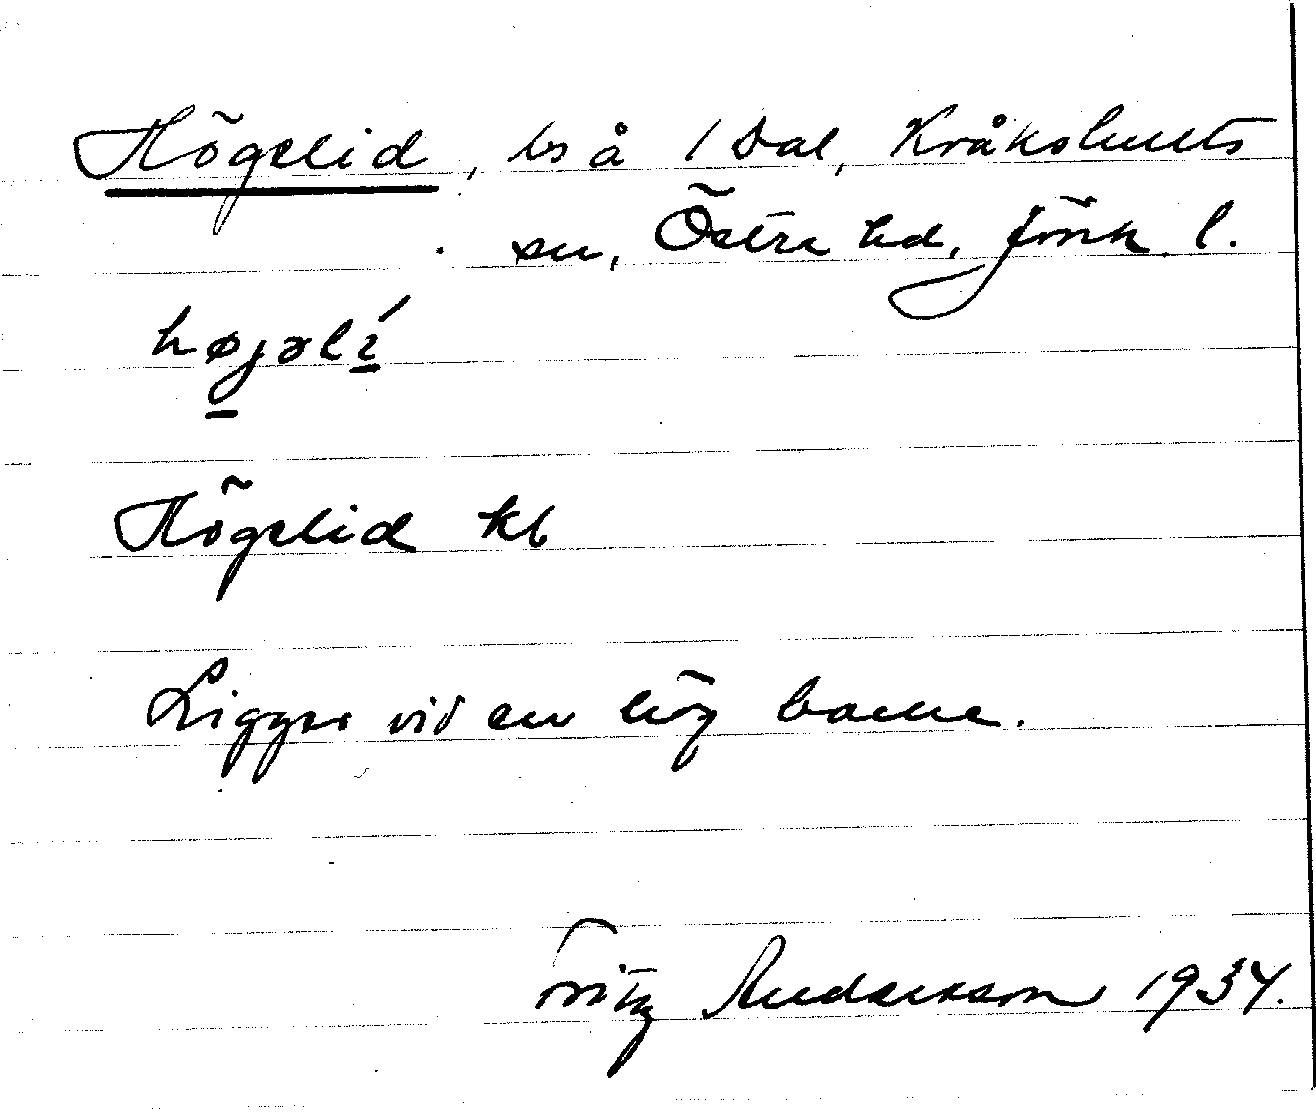 Högelid, ls å 1 Dal, Kråkshults
sn, Östra hd, Jönk. l.
højəlí
Högelid kb
Ligger vid en hög backe.
Fritz Andersson 1934.